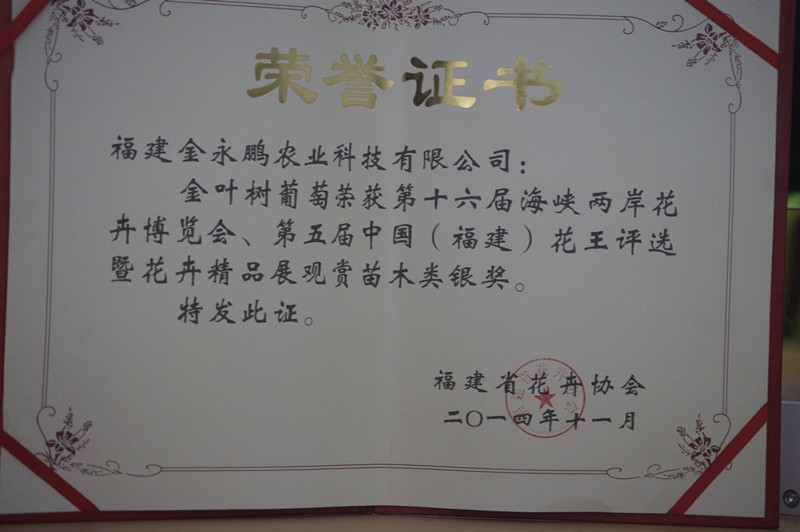 荣誉证书
福建金永鹏农业科技有限公司：
金叶树葡萄荣获第十六届海峡两岸花
卉博览会、第五届中国（福建）花王评选
暨花卉精品展观赏苗木类银奖。
特发此证。
福建省花卉协会
二〇一四年十一月